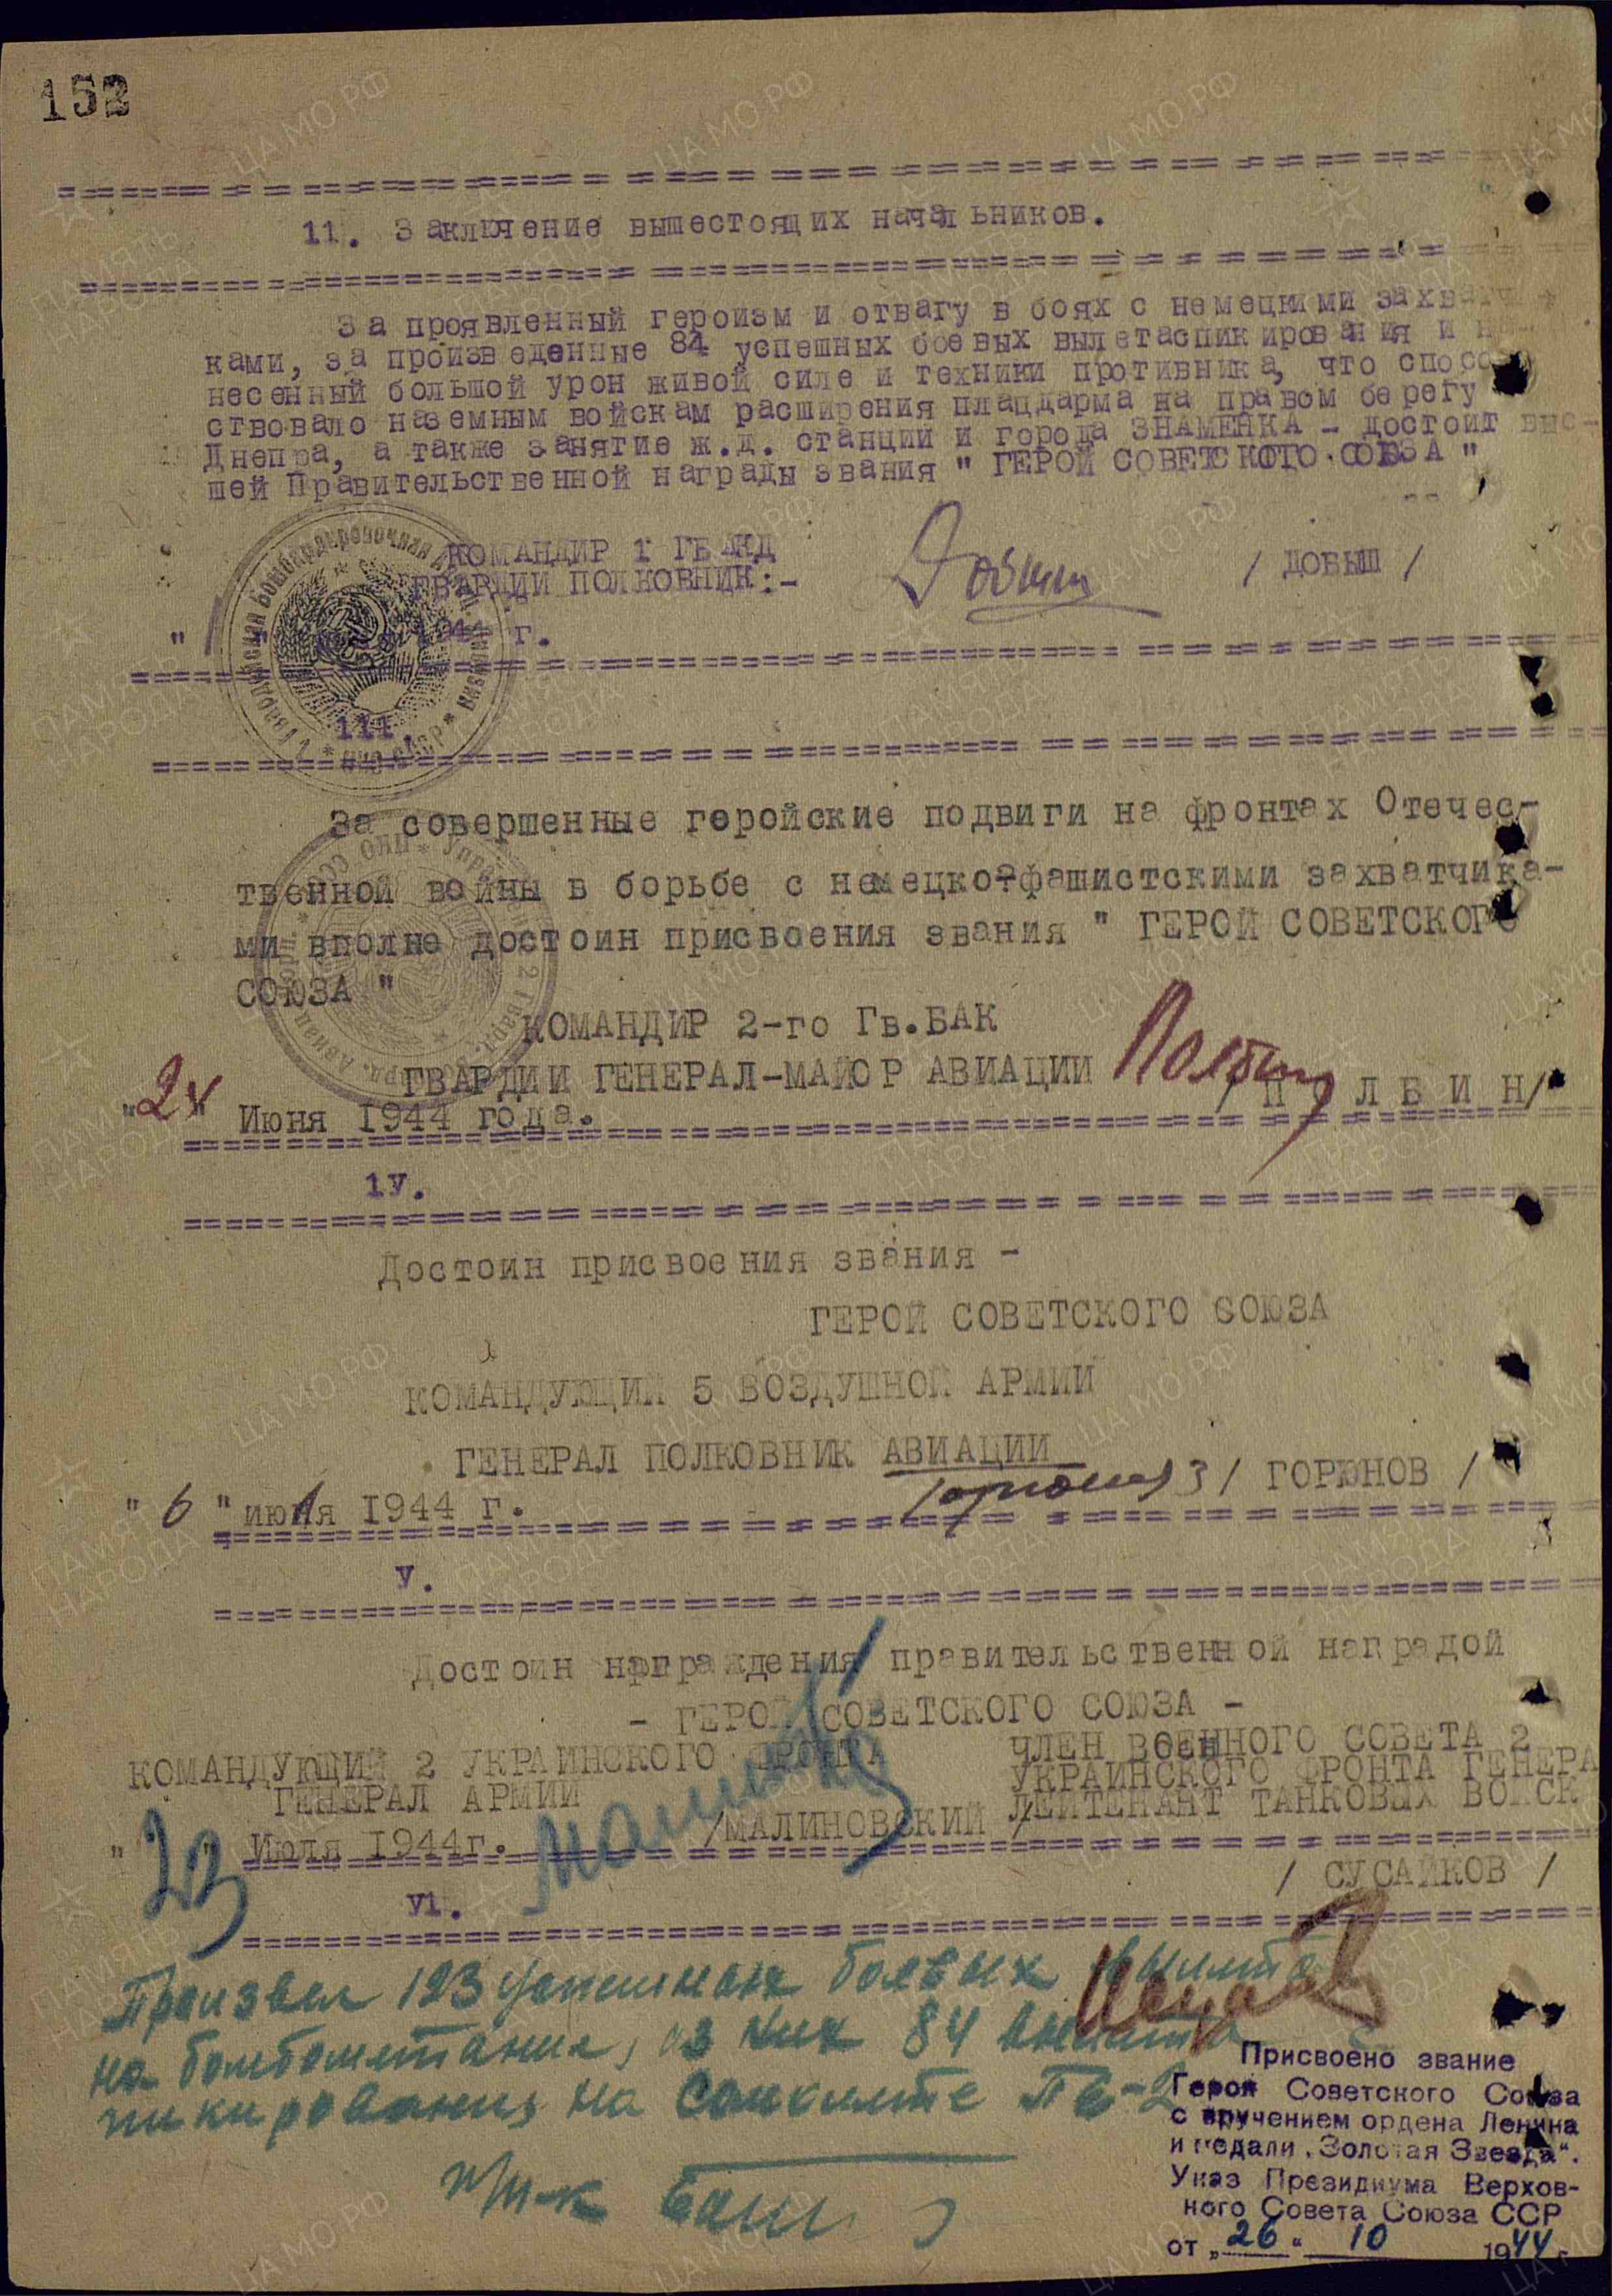 152
11. Заключение вышестоящих начальников.
За проявленный героизм и отвагу в боях с немецкими захватч
ками, за произведенные 84 успешных боевых вылетаспикирования и н
несенный большой урон живой силе и техники противника, что способ
ствовало наземным войскам расширения плацдарма на правом берегу
Днепра, а также занятие ж.д. станции и города ЗНАМЕНКА - достоит выс-
шей Правительственной награды звания " ГЕРОЙ СОВЕТСКОГО СОЮЗА "
КОМАНДИР 1 ГБАКД
ГВАРДИИ ПОЛКОВНИК:-
/ ДОБЫШ /
" " 1944 г.
111.
За совершенные геройские подвиги на фронтах Отечес-
твенной войны в борьбе с немецко-фашистскими захватчика-
ми вполне достоин присвоения звания " ГЕРОЙ СОВЕТСКОГО
СОЮЗА "
КОМАНДИР 2-го Гв.БАК
ГВАРДИИ ГЕНЕРАЛ-МАЙОР АВИАЦИИ
/ П О Л Б И Н/
"24" Июня 1944 года.
1У.
Достоин присвоения звания -
ГЕРОЙ СОВЕТСКОГО СОЮЗА
КОМАНДУЮЩИЙ 5 ВОЗДУШНОЙ АРМИИ
ГЕНЕРАЛ ПОЛКОВНИК АВИАЦИИ
/ ГОРЮНОВ /
" 6 " июля 1944 г.
У.
Достоин награждения правительственной наградой
- ГЕРОЙ СОВЕТСКОГО СОЮЗА -
КОМАНДУЮЩИЙ 2 УКРАИНСКОГО ФРОНТА
ГЕНЕРАЛ АРМИИ
/МАЛИНОВСКИЙ /
ЧЛЕН ВОЕННОГО СОВЕТА 2
УКРАИНСКОГО ФРОНТА ГЕНЕРА
ЛЕЙТЕНАНТ ТАНКОВЫХ ВОЙСК
"23" Июля 1944г.
/ СУСАЙКОВ /
У1.
Произвел 123 успешных боевых вылета
на бомбометание, из них 84 вылета
пикирования на самолете Пе-2
п/п-к
Присвоено звание
Героя Советского Союза
с вручением ордена Ленина
и медали „Золотая Звезда".
Указ Президиума Верхов-
ного Совета Союза ССР
от „26" 10 1944 г.